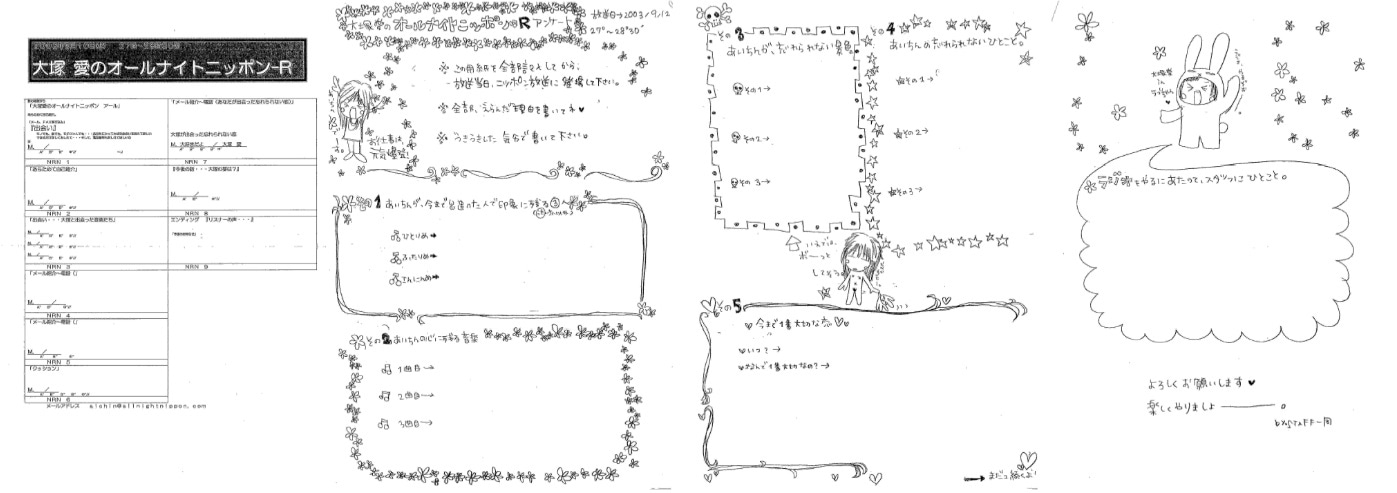 大塚 愛のオールナイトニッポン-R
「大塚愛のオールナイトニッポン アール」
『出会い』
NRN 1
「メール紹介～電話（あなたが出会った忘れられない恋）」
大塚が出会った忘れられない恋
M. 大好きだよ / 大塚 愛
NRN 7
「あらためて自己紹介」
NRN 2
『今後の話・・・大塚の夢は？』
NRN 8
「出会い・・大塚と出会った音楽たち」
NRN 3
エンディング 『リスナーの声・・・』
NRN 9
「メール紹介～電話（」
NRN 4
「メール紹介～電話（」
NRN 5
「ジャッジョン」
NRN 6
メールアドレス aichin@allnightnippon.com
大塚愛のオールナイトニッポンRアンケート
放送日→2003/9/12
27°～28°30"
この用紙を全部記入してから、
放送当日、ニッポン放送に登場して下さい。
全部、えらんだ理由を書いてネ♥
うきうきした気分で書いて下さい。
お仕事は
元気爆発!
その1 あいちんが、今まで出逢った人で印象に残る③人
ひとりめ➡
ふたりめ➡
さんにんめ➡
その2 あいちんの心に残る音楽
1曲目→
2曲目→
3曲目→
その3
あいちんが、忘れられない景色。
その1→
その2→
その3→
いえでは。
ボーっと
してそう。
その4
あいちんの忘れられないひとこと。
★その1→
★その2→
★その3→
その5
今まで1番大切な恋
♥いつ?→
♥なんで1番大切なの?→
➡まだつづくよ!
大塚愛
in
ラジオをやるにあたって、スタッフにひとこと。
よろしくお願いします♥
楽しくやりましょ―――。
byスタッフ一同